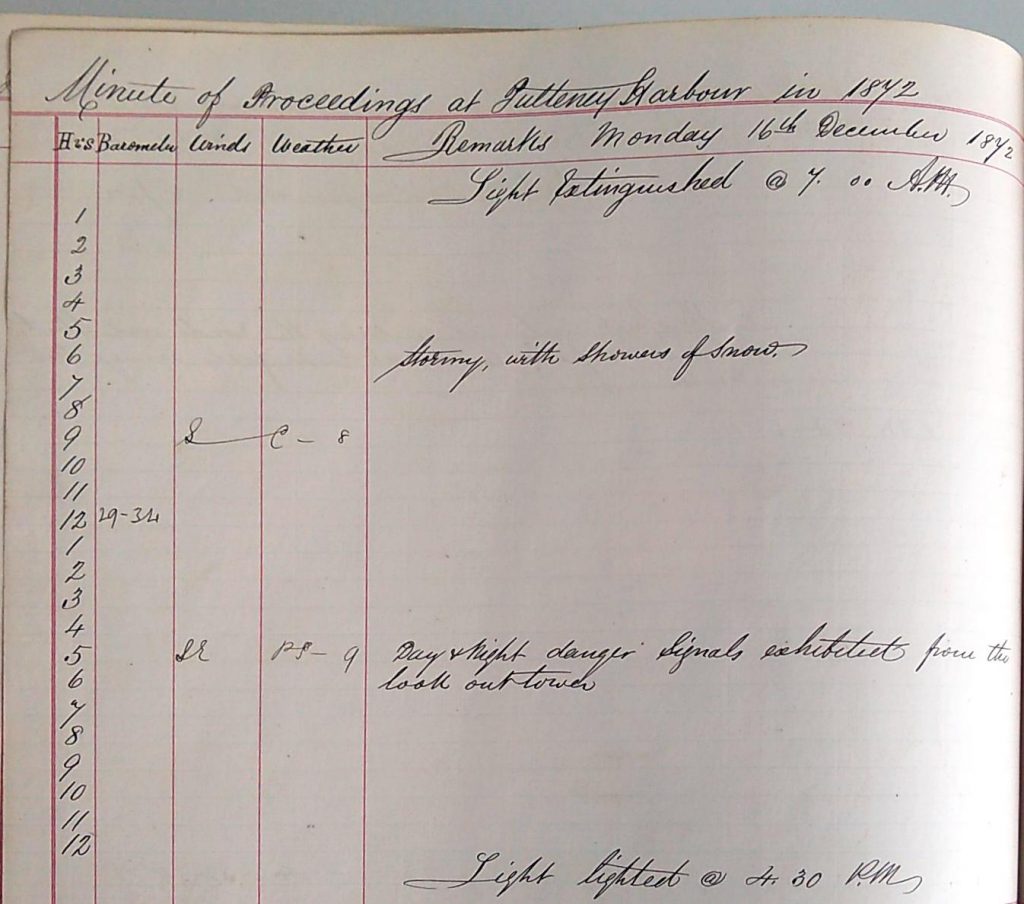 Minute of Proceedings at Pulteney Harbour in 1872
Hrs Barometer Winds Weather Remarks Monday 16th December 1872
Light Extinguished @ 7. 00 A.M.
1
2
3
4
5
6 Stormy, with Showers of Snow.
7
8
9 S C - 8
10
11
12 29-34
1
2
3
4
5 SE PS- 9 Day & Night danger Signals exhibited from the
6 look out tower
7
8
9
10
11
12
Light lighted @ 4. 30 P.M.